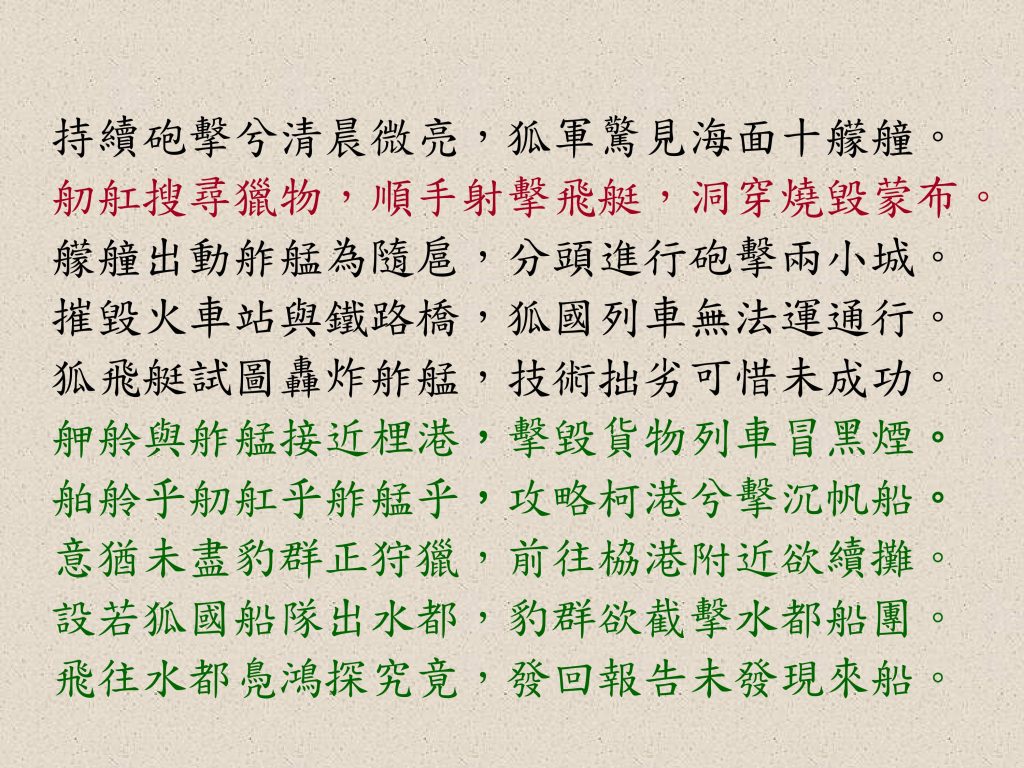 持續砲擊兮清晨微亮，狐軍驚見海面十艨艟。
舠舡搜尋獵物，順手射擊飛艇，洞穿燒毀蒙布。
艨艟出動舴艋為隨扈，分頭進行砲擊兩小城。
摧毀火車站與鐵路橋，狐國列車無法運通行。
狐飛艇試圖轟炸舴艋，技術拙劣可惜未成功。
舺舲與舴艋接近梩港，擊毀貨物列車冒黑煙。
舶舲乎舠舡乎舴艋乎，攻略柯港兮擊沉帆船。
意猶未盡豹群正狩獵，前往栛港附近欲續攤。
設若狐國船隊出水都，豹群欲截擊水都船團。
飛往水都鳧鴻探究竟，發回報告未發現來船。